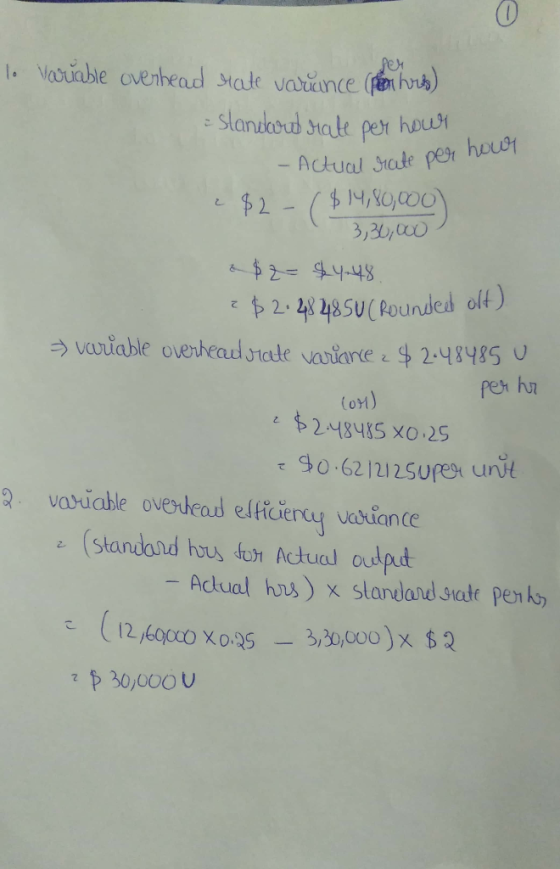 ①
1. Variable overhead rate variance (per hrs)
= Standard rate per hour
- Actual rate per hour
= $2 - ($14,80,000 / 3,30,000)
= $2 = $4.48
= $2.48485U (Rounded off)
⇒ variable overhead rate variance = $2.48485 U
per hr
(or)
= $2.48485 x0.25
= $0.6212125U per unit
2. variable overhead efficiency variance
= (Standard hrs for Actual output
- Actual hrs) x standard rate per hr
= (12,60,000 x0.25 - 3,30,000) x $2
= $30,000U